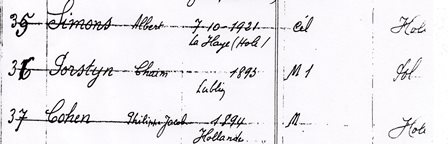 35 Simons Albert 7-10-1921 Cél Hol
La Haye (Holl
36 Gorstyn Chaim 1893 M 1 Pol
Lublin
37 Cohen Philippe Jacob 1894 M Hol
Hollande